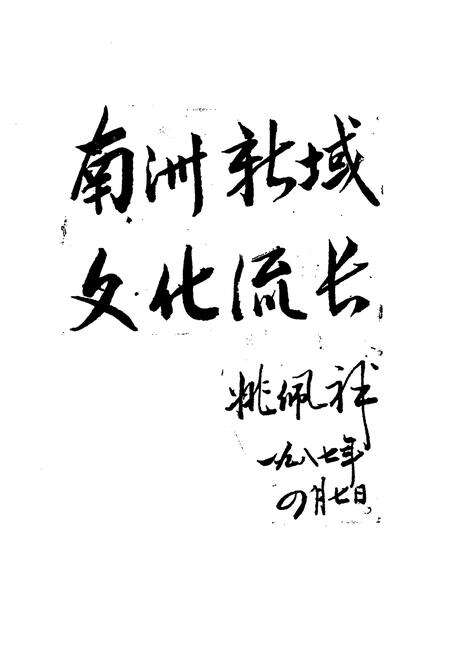 南洲新域
文化流长
姚佩祥
一九八七年
四月七日